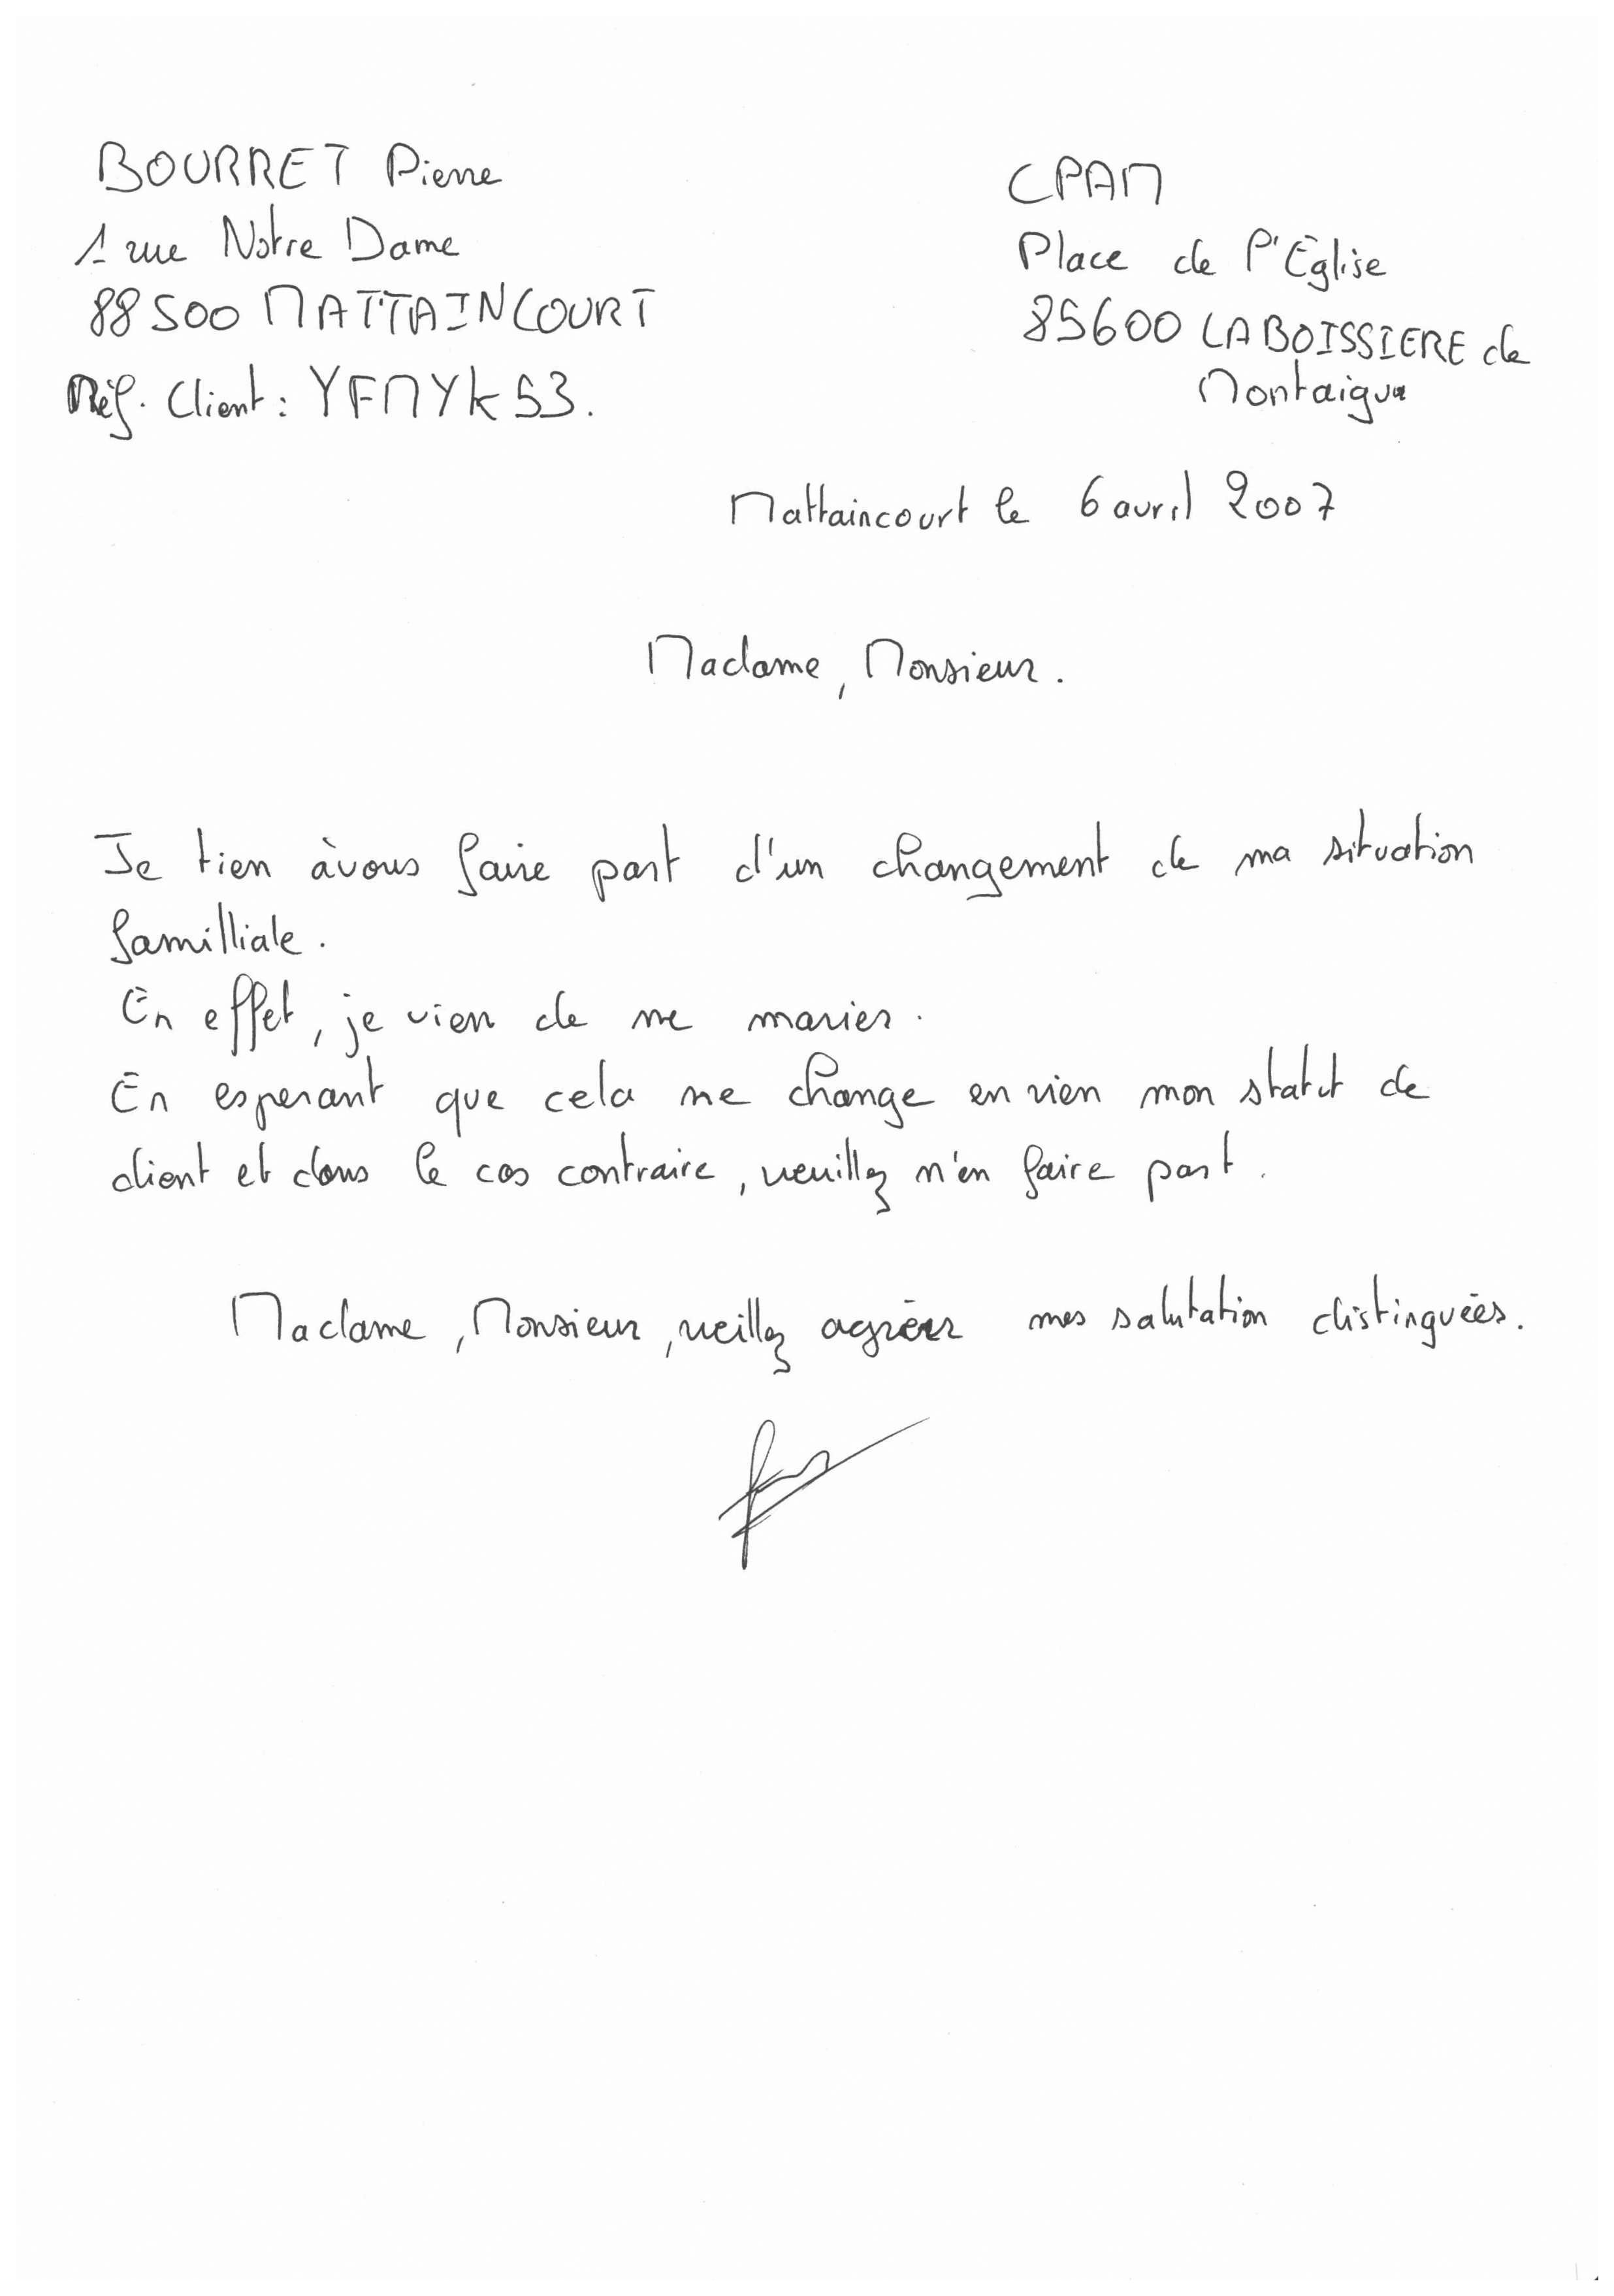 BOURRET Pierre
1 rue Notre Dame
88500 MATTAINCOURT
Réf. Client : YFMYK53.
CPAM
Place de l'Église
85600 LA BOISSIERE de
Montaigu
Mattaincourt le 6 avril 2007
Madame, Monsieur.
Je tien à vous faire part d'un changement de ma situation
familliale.
En effet, je vien de me marier.
En esperant que cela ne change en rien mon statut de
client et dans le cas contraire, veuillez m'en faire part.
Madame, Monsieur, veillez agréer mes salutation distinguées.